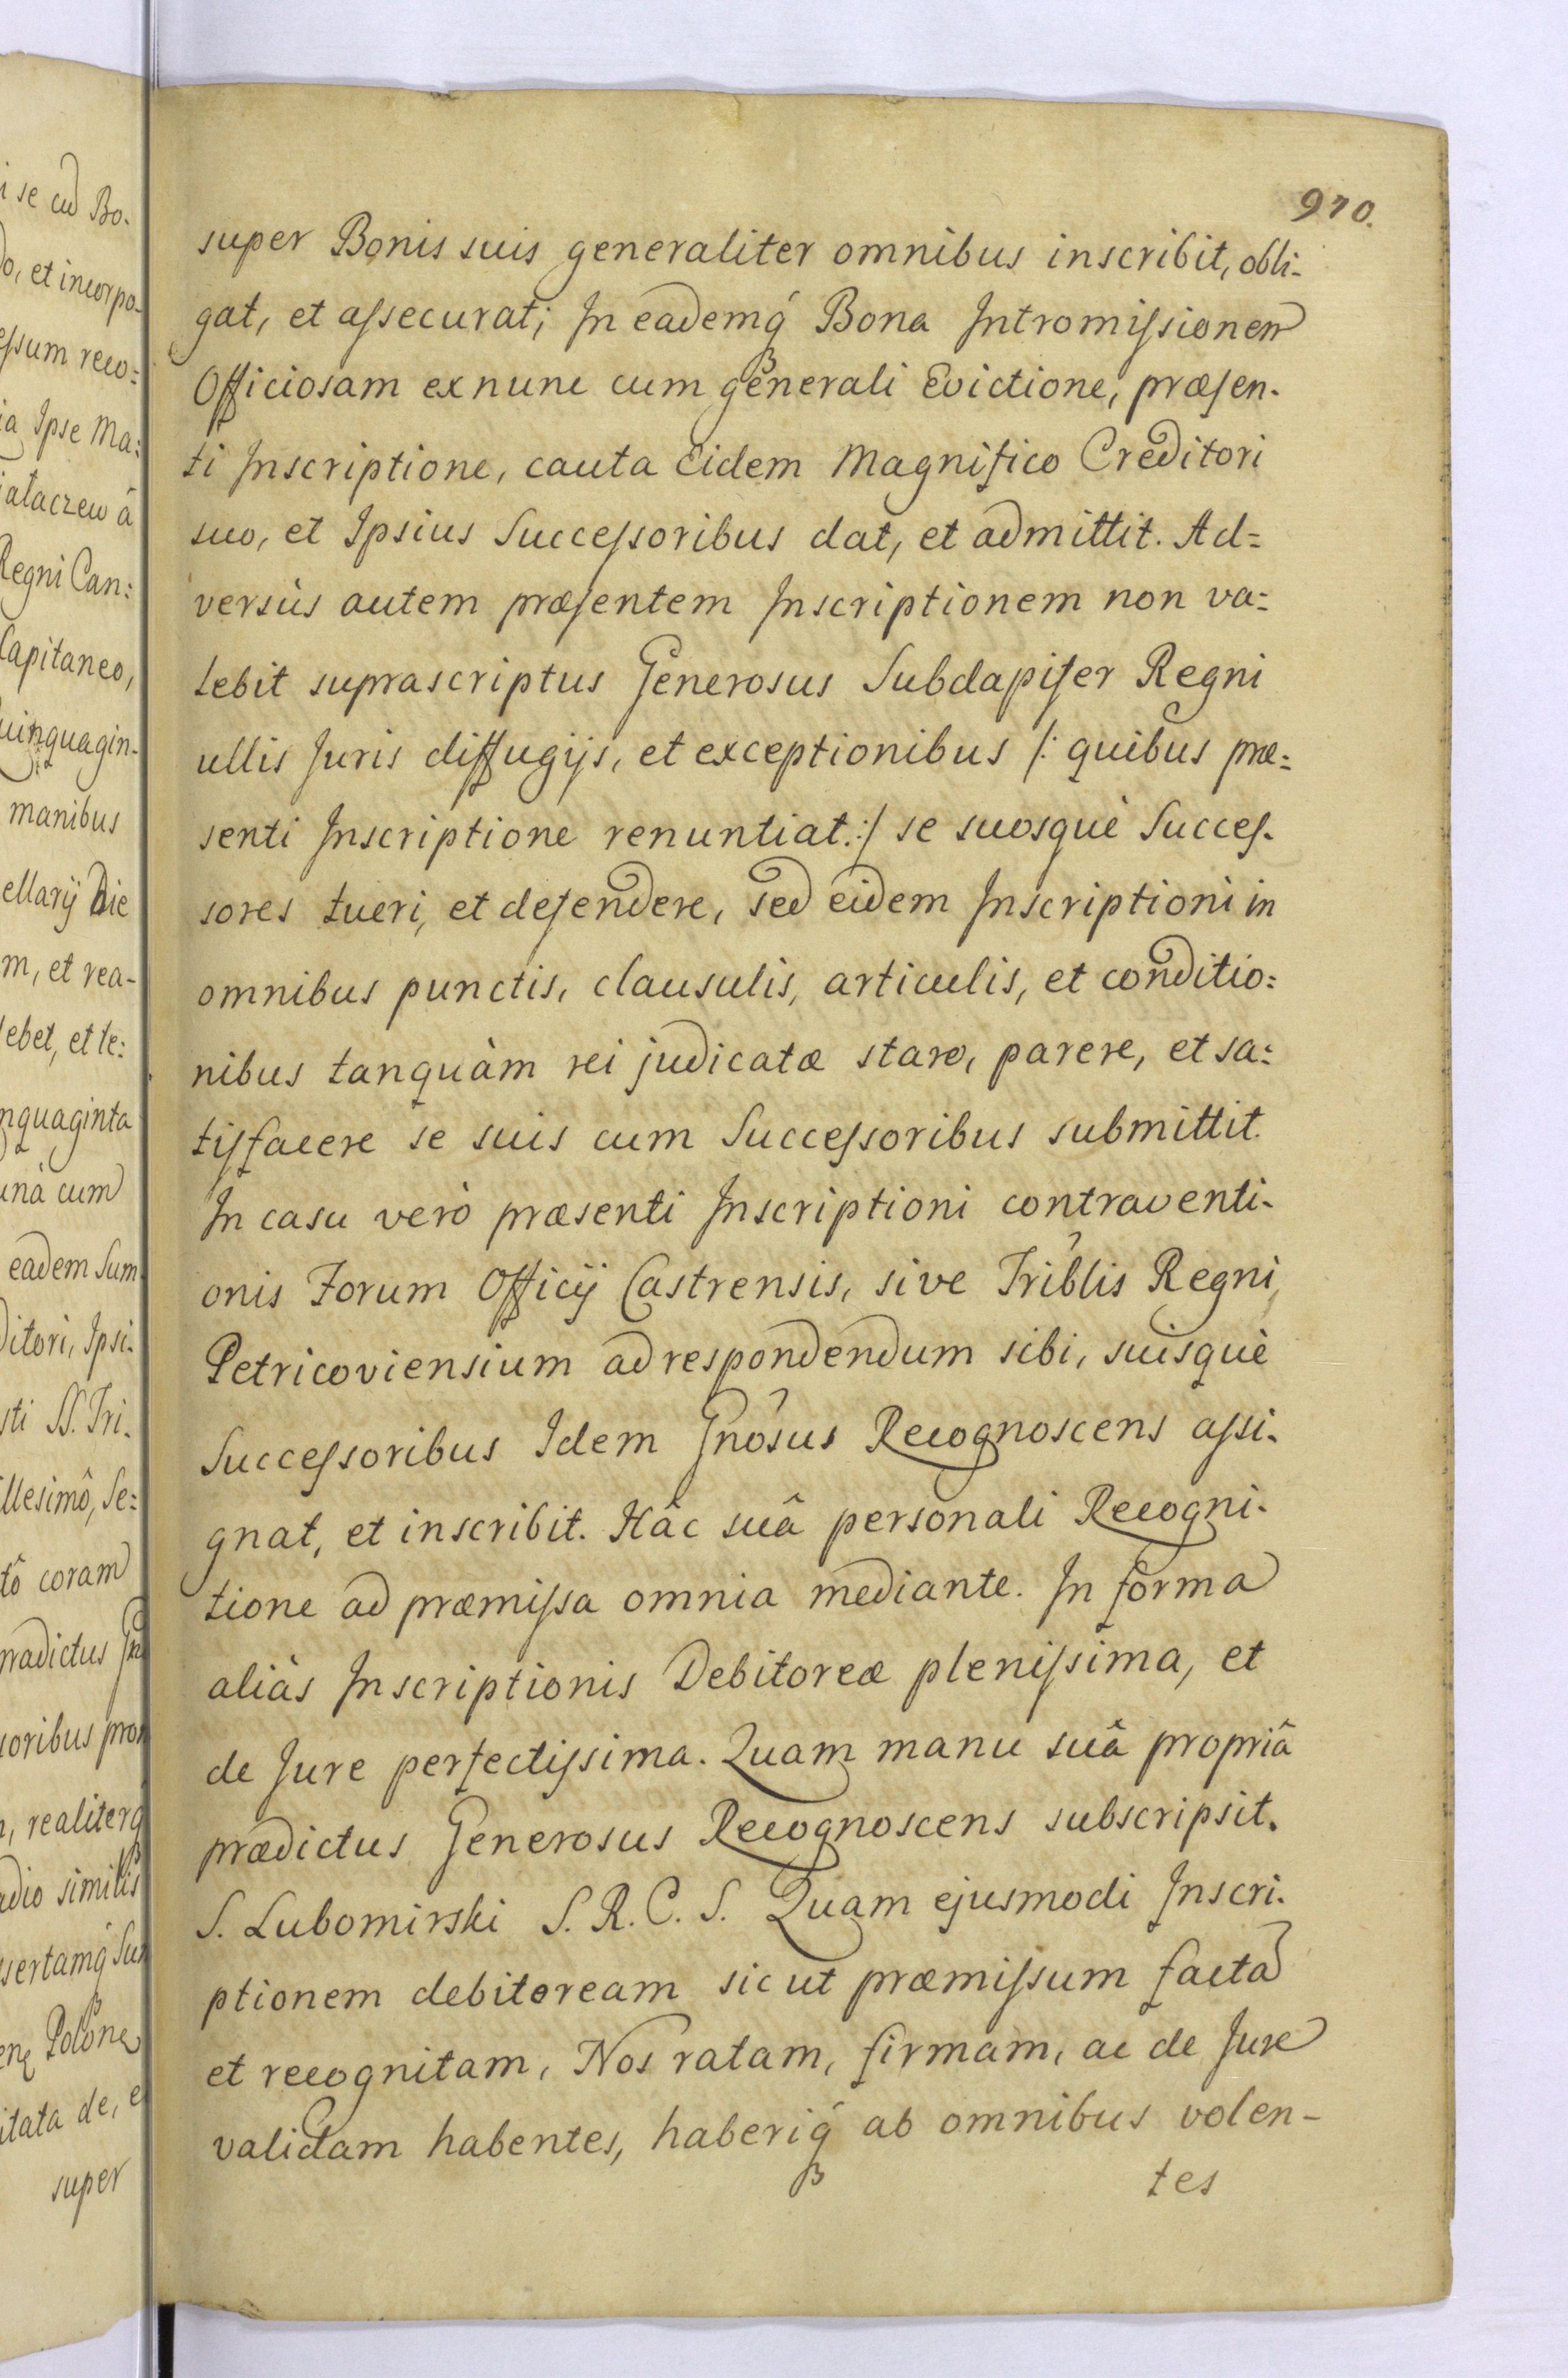 i se cu Bo.
o, et incorpo-
essum reco:
ia Ipse Ma:
iataczew â
Regni Can:
Capitaneo,
uinquagin-
manibus
ellarij Die
m, et rea-
ebet, et te:
nquaginta
unà cum
eadem Sum
ditori, Ipsi.
sti SS. Tri.
llesimô, Se:
tô coram
radictus Gn
soribus pro
, realiterq́
dio similis
sertamq́ Su
Polone
itata de, e
super
970.
super Bonis suis generaliter omnibus inscribit, obli-
gat, et assecurat; In eademq́ Bona Intromissionem
Officiosam ex nunc cum generali Evictione, præsen-
ti Inscriptione, cauta Eidem Magnifico Creditori
suo, et Ipsius Successoribus dat, et admittit. Ad=
versùs autem præsentem Inscriptionem non va=
lebit suprascriptus Generosus Subdapifer Regni
ullis Juris diffugijs, et exceptionibus /: quibus præ=
senti Inscriptione renuntiat :/ se suosquè Succes-
sores tueri, et defendere, sed eidem Inscriptioni in
omnibus punctis, clausulis, articulis, et conditio=
nibus tanquàm rei judicatæ stare, parere, et sa=
tisfacere se suis cum Successoribus submittit.
In casu verò præsenti Inscriptioni contraventi-
onis Forum Officij Castrensis, sive Triblis Regni,
Petricoviensium ad respondendum sibi, suisquè
Successoribus Idem Gnosus Recognoscens assi-
gnat, et inscribit. Hâc suâ personali Recogni-
tione ad præmissa omnia mediante. In forma
aliàs Inscriptionis Debitoreæ plenissima, et
de Jure perfectissima. Quam manu suâ propriâ
prædictus Generosus Recognoscens subscripsit.
S. Lubomirski S. R. C. S. Quam ejusmodi Inscri-
ptionem debitoream sic ut præmissum facta
et recognitam, Nos ratam, firmam, ac de Jure
validam habentes, haberiq́ ab omnibus volen-
tes